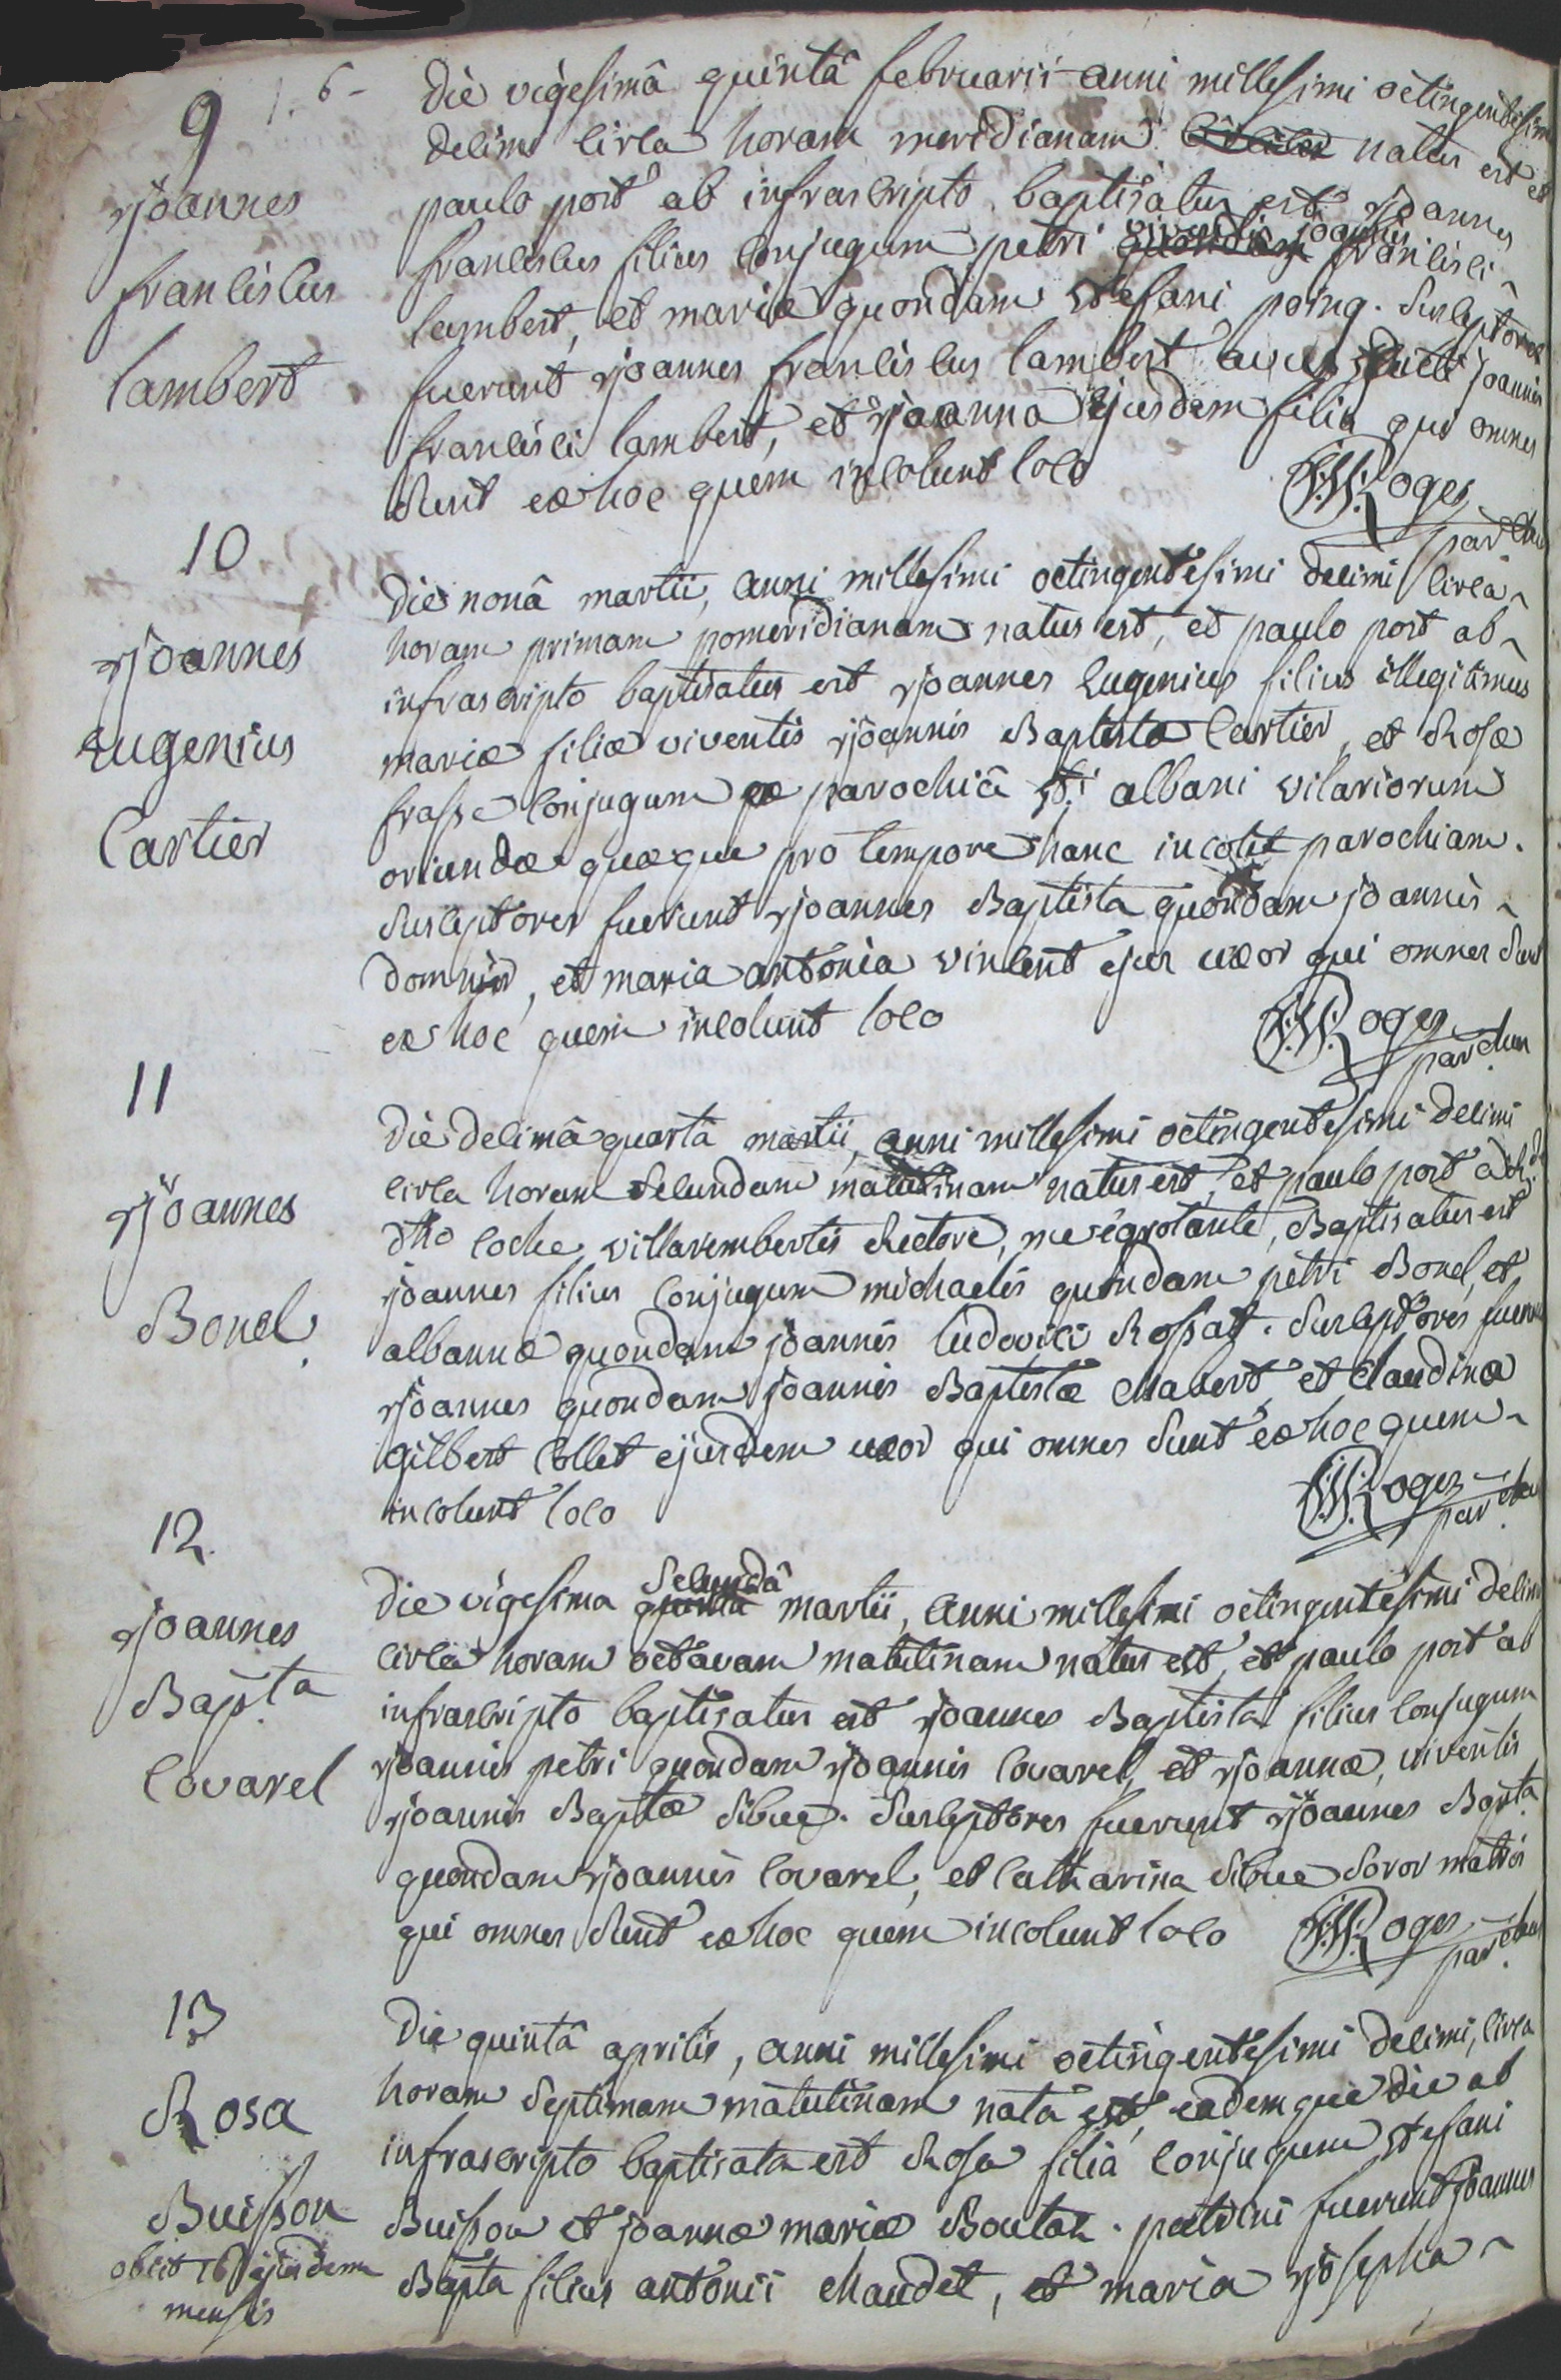 9
6-
Joannes
franciscus
lambert
Die vigesimâ quintâ februarii anni millesimi octingentesimi
decimi circa horam meridianam natus est et
paulo post ab infrascripto baptisatus est Joannes
franciscus filius conjugum petri viventis joannis francisci
lambert, et mariæ quondam stefani poing. Susceptores
fuerunt Joannes franciscus lambert avus joannis
francisci lambert, et Joanna ejusdem filia qui omnes
sunt ex hoc quem incolunt loco
Roges
par chus
10
Joannes
Eugenius
Cartier
Die nonâ martii, anni millesimi octingentesimi decimi circa
horam primam pomeridianam natus est, et paulo post ab
infrascripto baptisatus est Joannes Eugenius filius illegitimus
mariæ filiæ viventis Joannis Baptista Cartier, et Rosæ
frasse conjugum ex parochiâ sti albani vilariorum
oriundæ quæque pro tempore hanc incolit parochiam.
Susceptores fuerunt Joannes Baptista quondam joannis
Domnin, et maria antonia vincent ejus uxor qui omnes sunt
ex hoc quem incolunt loco
Roges
par chus
11
Joannes
Bonel
Die decimâ quartâ martii, anni millesimi octingentesimi decimi
circa horam secundam matutinam natus est, et paulo post a Rdo
dno coche villarembertis Rectore, me égrotante, Baptisatus est
joannes filius conjugum michaelis quondam petri Bonel, et
albannæ quondam joannis ludovici Rossat. Susceptores fuerunt
Joannes quondam joannis Baptistæ chabert, et claudina
gilbert collet ejusdem uxor qui omnes sunt ex hoc quem
incolunt loco
Roges
par chus
12
Joannes
Bapta
Covarel
Die vigesima secundâ martii, anni millesimi octingentesimi decimi
circa horam octavam matutinam natus est, et paulo post ab
infrascripto baptisatus est Joannes Baptista filius conjugum
Joannis petri quondam Joannis covarel, et Joannæ, viventis
Joannis Baptæ Sibue. Susceptores fuerunt Joannes Bapta
quondam Joannis covarel, et catharina Sibue soror matris
qui omnes sunt ex hoc quem incolunt loco
Roges
par chus
13
Rosa
Buisson
obiit 16 ejusdem
mensis
Die quintâ aprilis, anni millesimi octingentesimi decimi, circa
horam septimam matutinam nata est, eademque die ab
infrascripto baptisata est Rosa filia conjugum stefani
Buisson et joannæ mariæ Boutaz. patrini fuerunt joannes
Bapta filius antonii chaudet, et maria Josepha